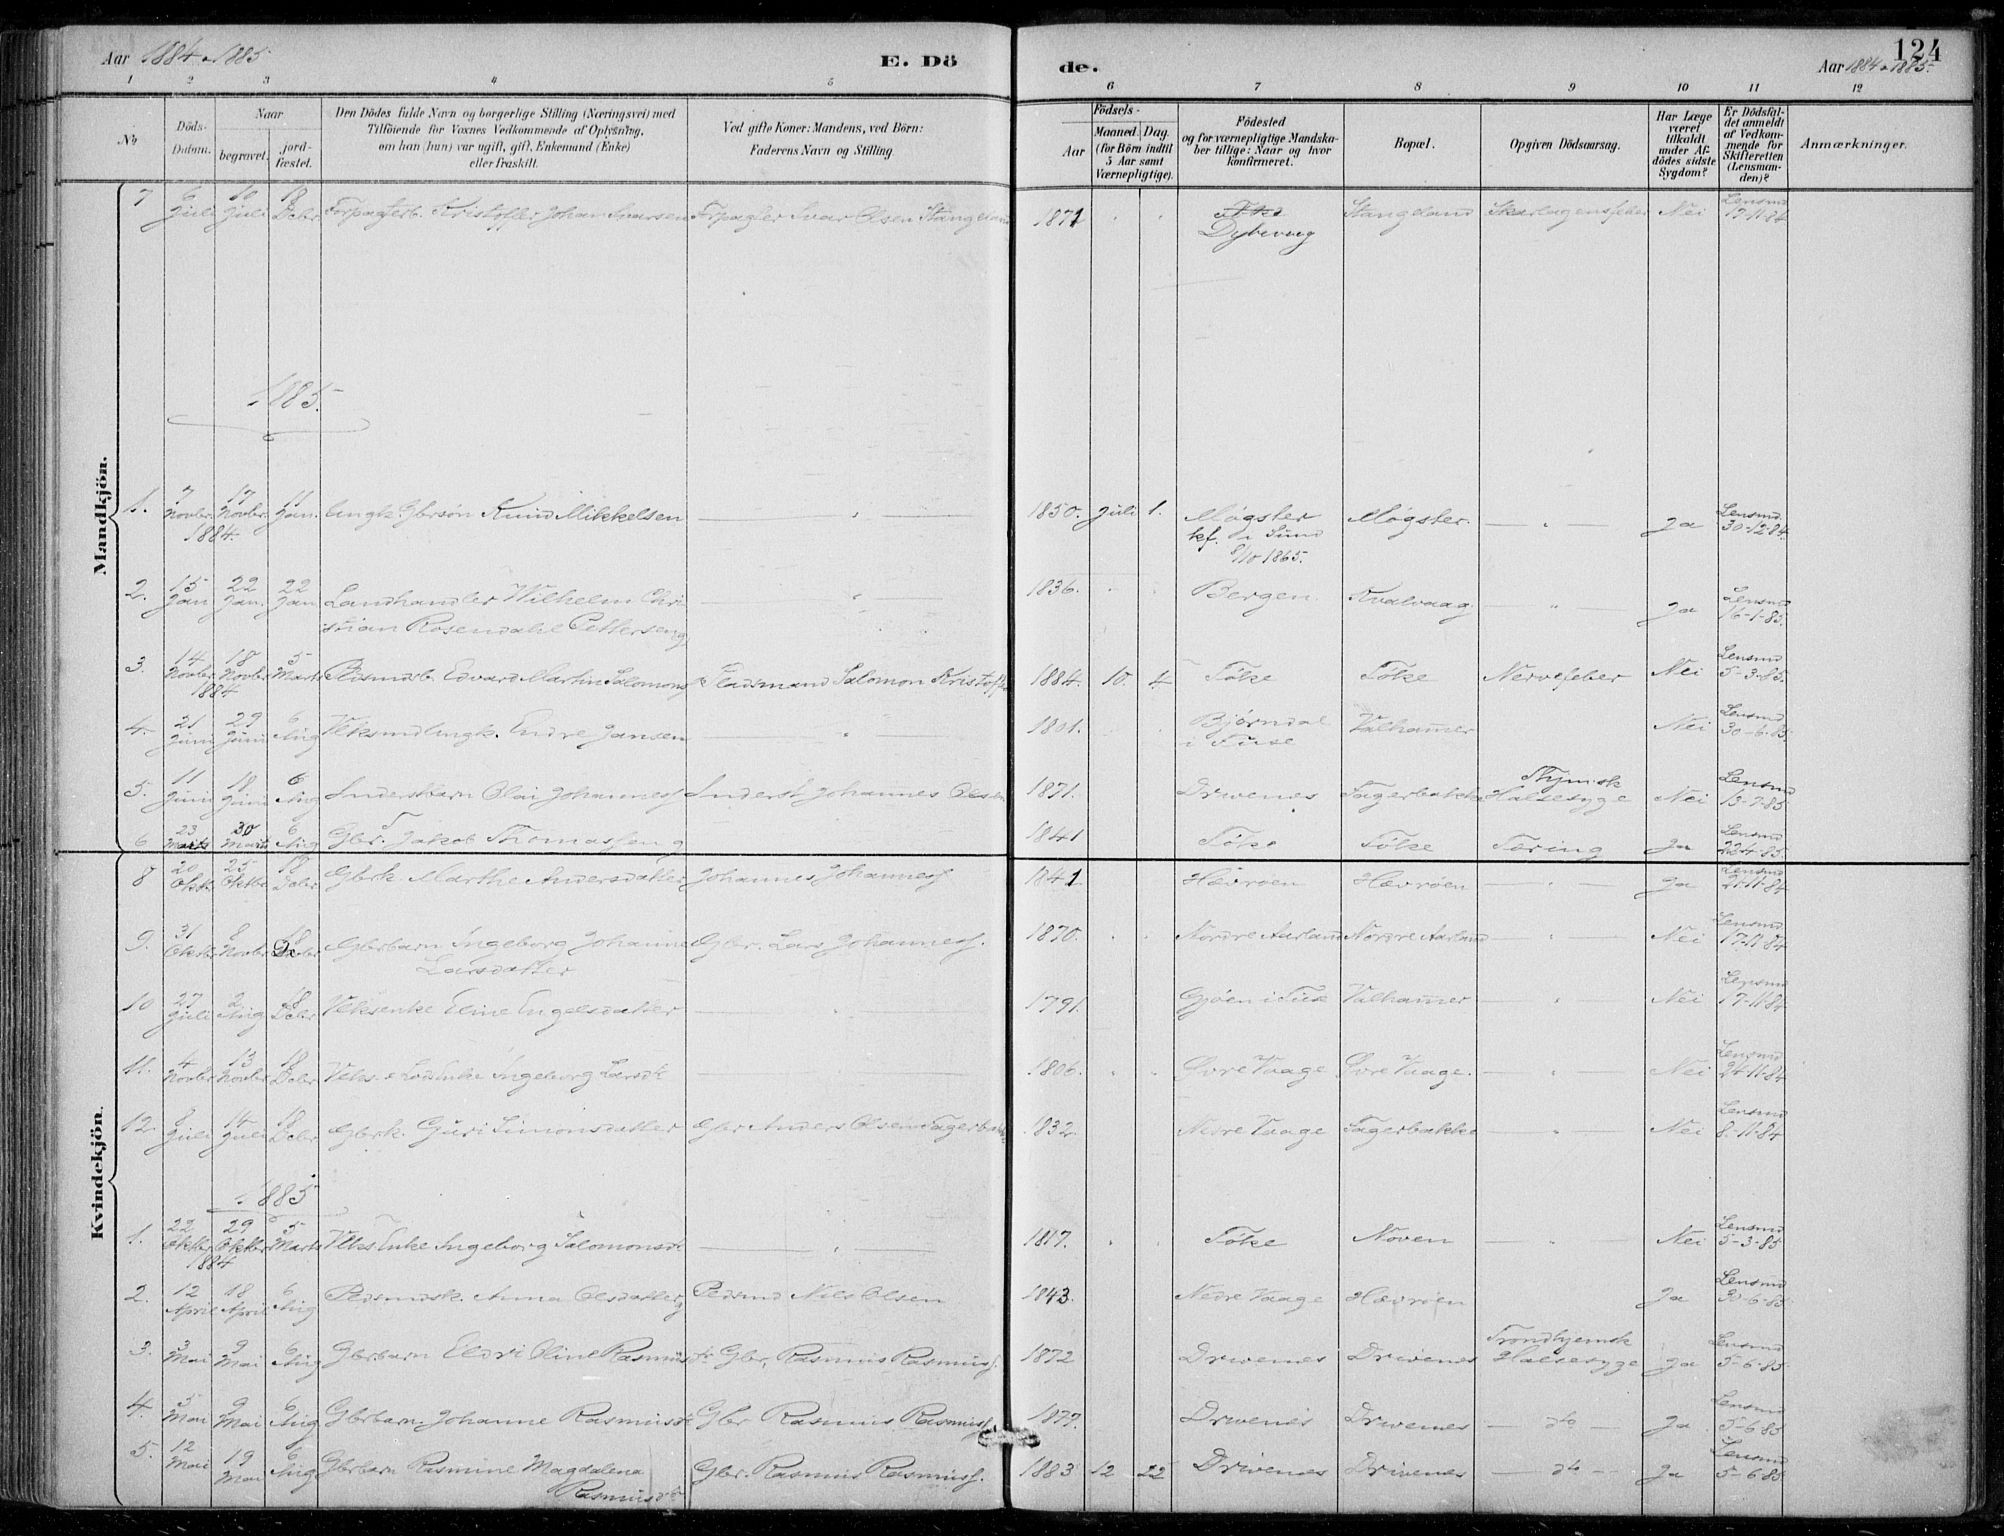 Aar 1884 & 1885 E. Dö de. Aar 1884 & 1885. 124
1 2 3 4 5 6 7 8 9 10 11 12
No
Döds-
Datum.
Naar
begravet.
jord-
fæstet.
Den Dödes fulde Navn og borgerlige Stilling (Næringsvei) med
Tilföiende for Voxnes Vedkommende af Oplysning,
om han (hun) var ugift, gift, Enkemand (Enke)
eller fraskilt.
Ved gifte Koner: Mandens, ved Börn:
Faderens Navn og Stilling.
Födsels-
Aar
Maaned. Dag.
(for Börn indtil
5 Aar samt
Værnepligtige).
Födested
og for værnepligtige Mandska-
ber tillige: Naar og hvor
konfirmeret.
Bopæl.
Opgiven Dödsaarsag.
Har Læge
været
tilkaldt
under Af-
dödes sidste
Sygdom?
Er Dödsfal-
det anmeldt
af Vedkom-
mende for
Skifteretten
(Lensman-
den)?
Anmærkninger.
Mandkjön.
7 6 Juli 10 Juli 18 Decbr Forpagterb. Kristoffer Johan Ivarsen Forpagter Ivar Olsen Stangeland 1871 Stangeland Skarlagensfeber Nei Lensmd 17-11-84
Dybevaag
1885.
1. 7 Novbr. 17 Novbr. 11 Jan. Ungk. Gbrsøn Knud Mikkelsen 1850. Juli 1. Møgster Møgster. Ja Lensmd. 30-12-84.
1884. kf. i Sund
8/10 1865.
2. 15 Jan 22 Jan. 22 Jan. Landhandler Wilhelm Chri 1836. Bergen Kvalvaag Ja Lensmd 16-1-85.
stian Rosendahl Pettersen g
3. 14 Novbr 18 Novbr 5 Marts Pldsmdsb. Edvard Martin Salomons. Pladsmand Salomon Kristoffer 1884. 10. 4. Føke Føke Nervefeber Nei Lensmd 5-3-85.
1884
4. 21 Juni 29 Juni 6 Aug Endre Jansen 1801. Bjørndal Valhamer Nei Lensmd 30-6-85.
i Fuse
5. 11 Juni 18 Juni 6 Aug Inderstbarn Olai Johannes. Inderst Johannes Olsen 1871. Drivenes Fagerbakke Halsesyge Nei Lensmd 13-7-85
6 23 Marts 30 Marts 6 Aug Gbr. Jakob Thomassen g 1841 Føke Føke Tæring Ja Lensmd 22-4-85.
Kvindekjön.
8 20 Oktbr 25 Oktbr 18 Decbr Gbrk. Marthe Andersdatter Johannes Johanness. 1841 Hævrøen Hævrøen Ja Lensmd 21-11-84
9. 31 Oktbr 8 Novbr 18 Decbr Gbrbarn Ingeborg Johanne Gbr. Lars Johanness. 1870. Nordre Aarland Nordre Aarland Nei Lensmd 17-11-84
Larsdatter
10 27 Juli 2 Aug 18 Decbr Eline Engelsdatter 1791. Gjøen i Fuse Valhamer Nei Lensmd 17-11-84
11. 4 Novbr 13 Novbr 18 Decbr Enke Ingeborg Larsdt. 1806. Øvre Vaage Øvre Vaage. Nei Lensmd 24-11-84
12. 8 Juli 14 Juli 18 Decbr Gbrk. Guri Simonsdatter Gbr Anders Olsen Fagerbakke 1832. Nedre Vaage Fagerbakke Nei Lensmd 8-11-84
1885
1. 22 Oktbr 29 Oktbr 5 Marts Enke Ingeborg Salomonsdt. 1817. Føke Noven Nei Lensmd 5-3-85
1884
2. 12 April 18 April 6 Aug Pldsmdsk. Anna Olsdatter g Pldsmd Nils Olsen 1843. Nedre Vaage Hævrøen Ja Lensmd 30-6-85
3. 3 Mai 9 Mai 6 Aug Gbrbarn Eldri Oline Rasmusdt. Gbr. Rasmus Rasmuss. 1872 Drivenes Drivenes Trondhjemsk Halsesyge Ja Lensmd 5-6-85
4. 5 Mai 9 Mai 6 Aug Gbrbarn Johanne Rasmusdt. Gbr Rasmus Rasmuss. 1877. Drivenes Drivenes do Ja Lensmd 5-6-85
5. 12 Mai 19 Mai 6 Aug Gbrbarn Rasmine Magdalena Gbr. Rasmus Rasmuss. 1883 12 22 Drivenes Drivenes do Ja Lensmd 5-6-85
Rasmusdtr